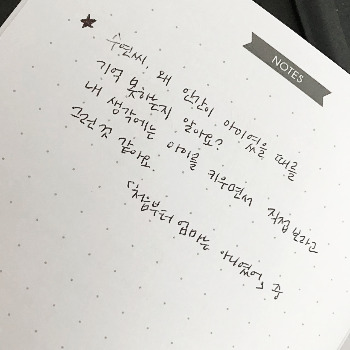 NOTES
수연씨, 왜 인간이 아이였을 때를
기억 못하는지 알아요?
내 생각에는 아이를 키우면서 직접 보라고
그런 것 같아요.
「처음부터 엄마는 아니었어」 중